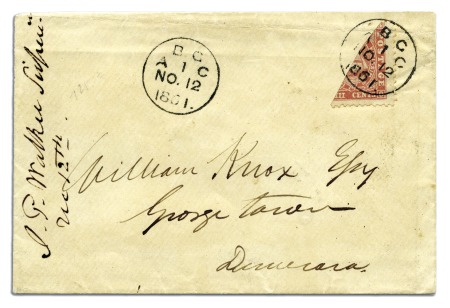 B C C
A 1
NO. 12
1861.
B C C
A 1
NO. 12
1861.
II CENTS
William Knox Esq
George town
Demerara.
J. P. Walker